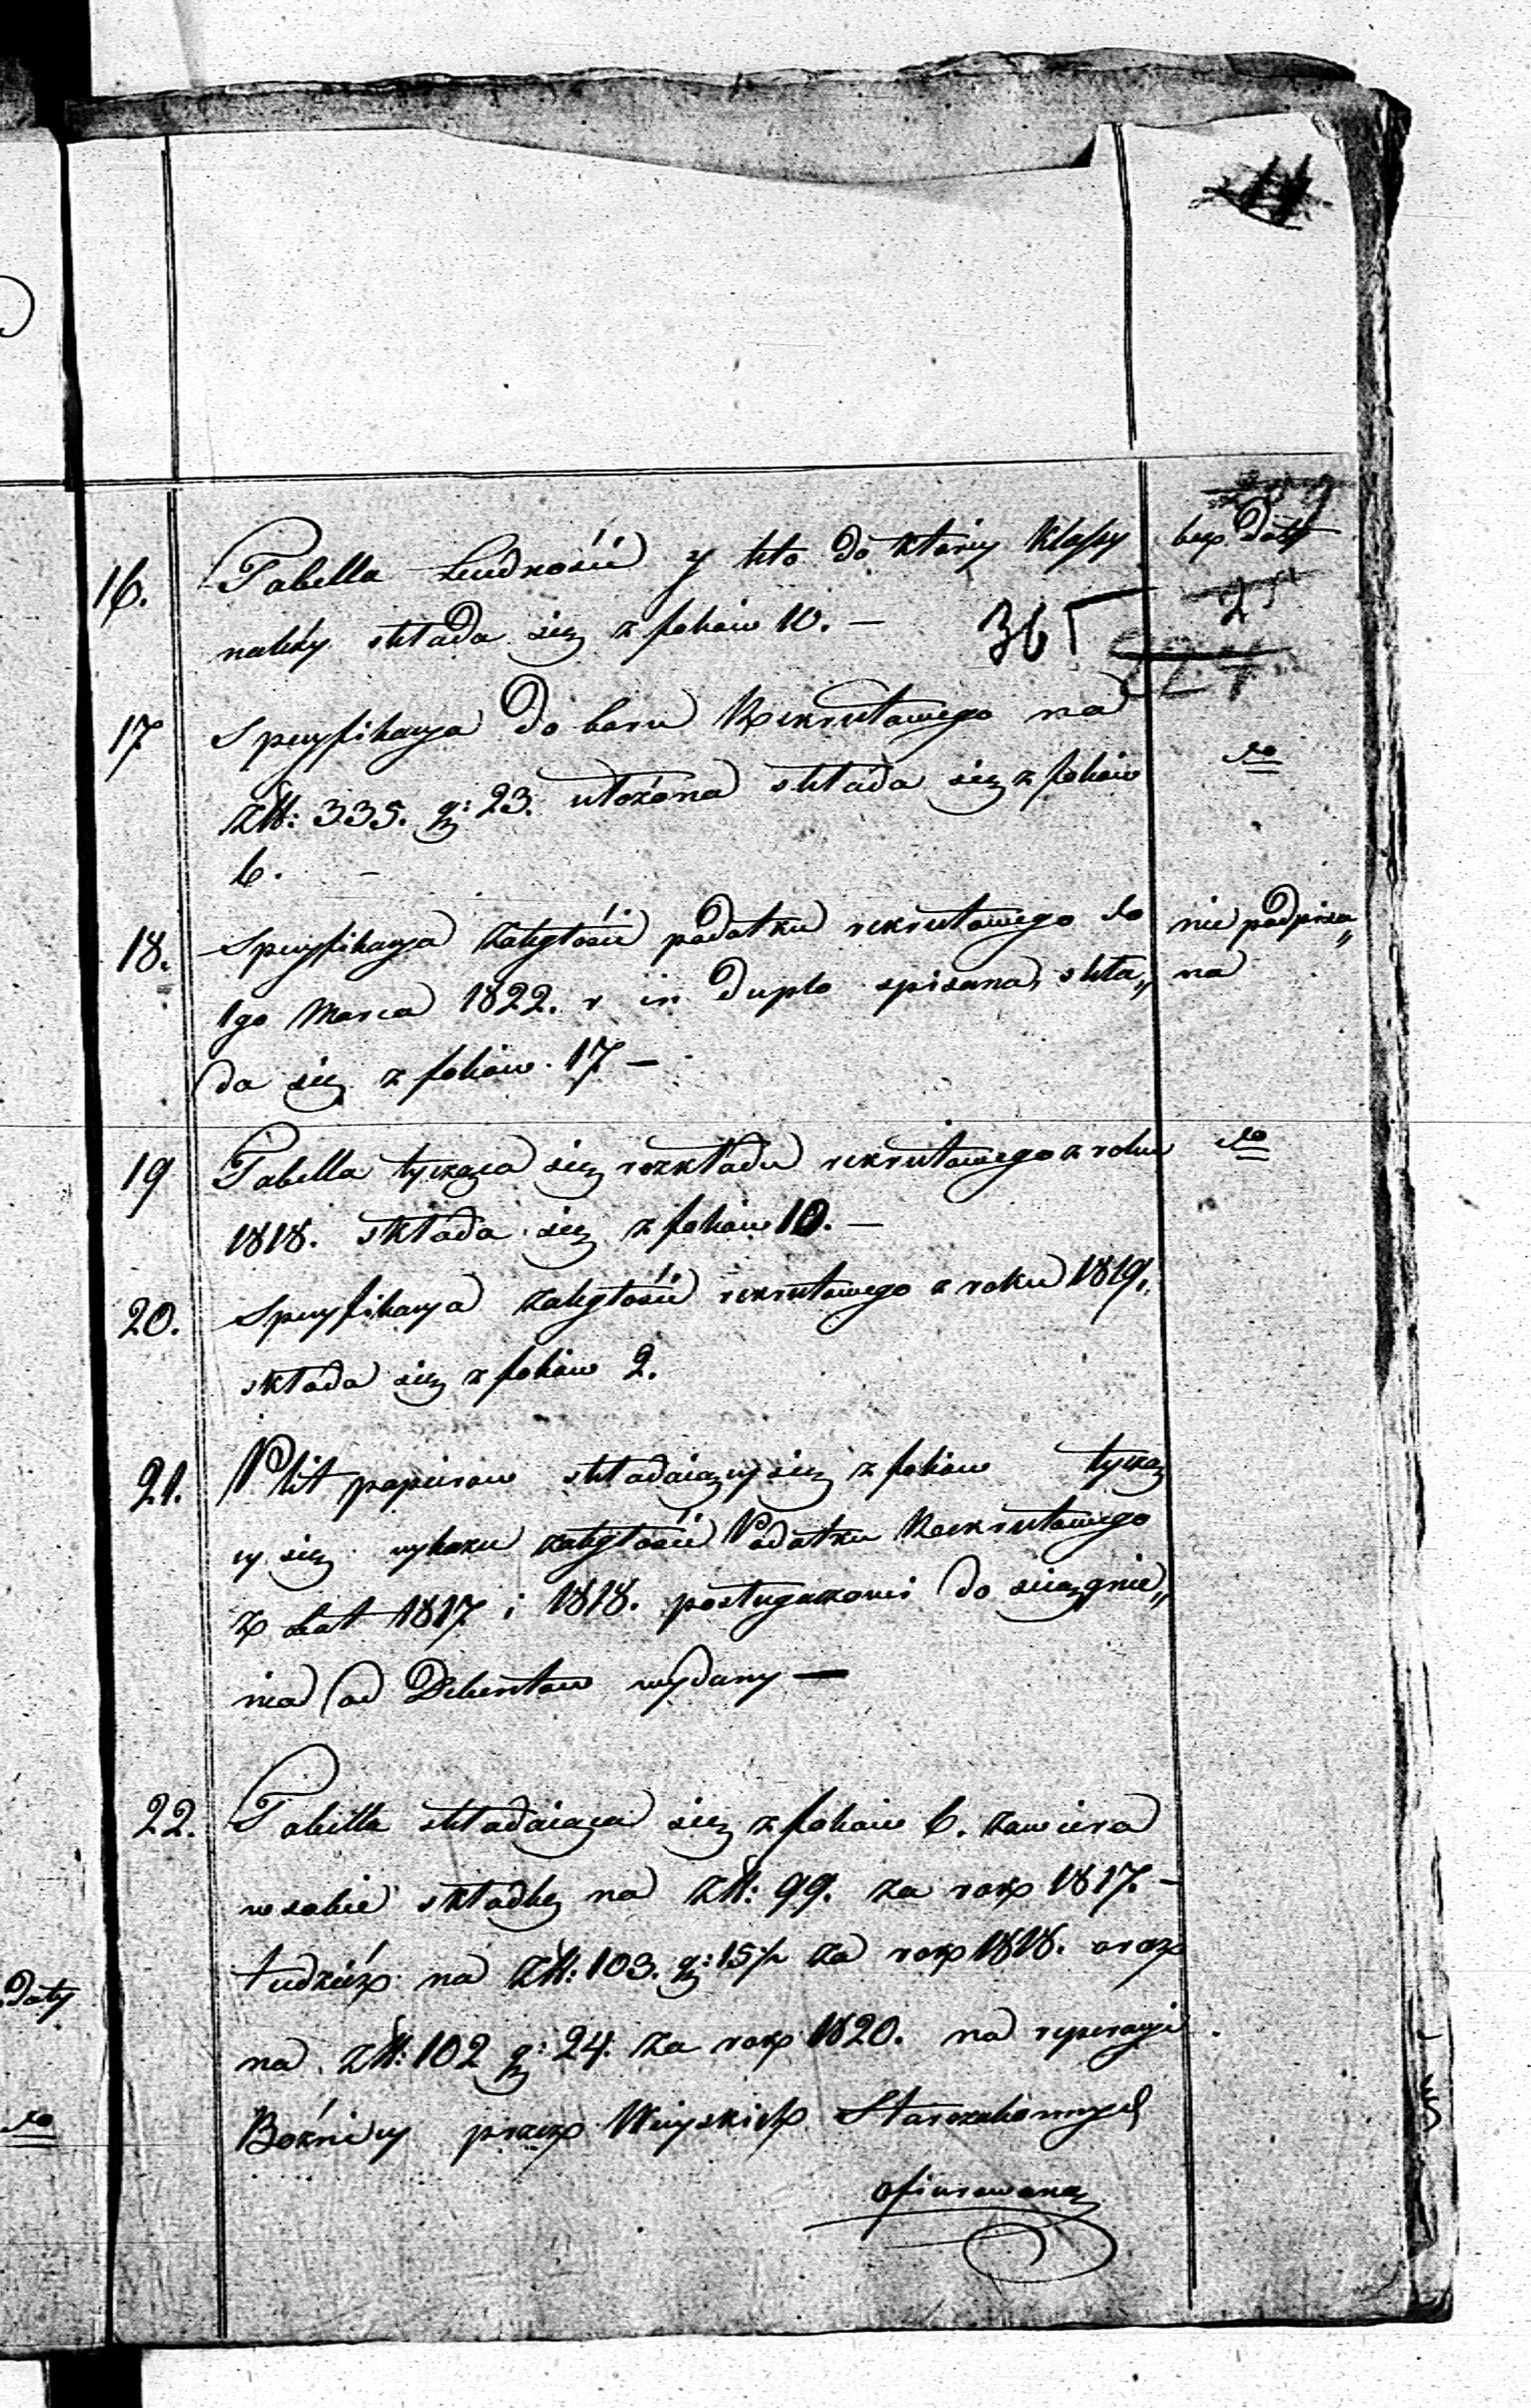 16. Tabella Ludności y kto do któréy Klassy bez daty
należy składa się z foliów 10. —
365
17 Specyfikacya do boru Rekrutowego na
Złł: 335. g: 23. ułożona składa się z foliów do
6. —
18. Specyfikacya zaległości podatku rekrutowego do nie podpisa„
1go Marca 1822. r in duplo spisana, skła„ na
da się z foliów 17 —
19 Tabella tycząca się rozkładu rekrutowego z roku do
1818. składa się z foliów 10. —
20. Specyfikacya zaległości rekrutowego z roku 1819.
składa się z foliów 2.
21. Plik papierow składaiący się z foliow tyczą
cy się wykazu zaległości Podatku Rekrutowego
z Lat 1817 i 1818. posługaczowi do sciągnie„
nia od Debentow wydany —
22. Tabella składaiąca się z foliow 6. zawiera
w sobie składkę na Złł: 99. za rok 1817. —
tudzież na Złł: 103. g: 15 ½ za rok 1818. oraz
na Złł: 102 g: 24. za rok 1820. na reperacyi
Bożnicy przez Wieyskich Starozakonnych
ofiarowaną
daty
do